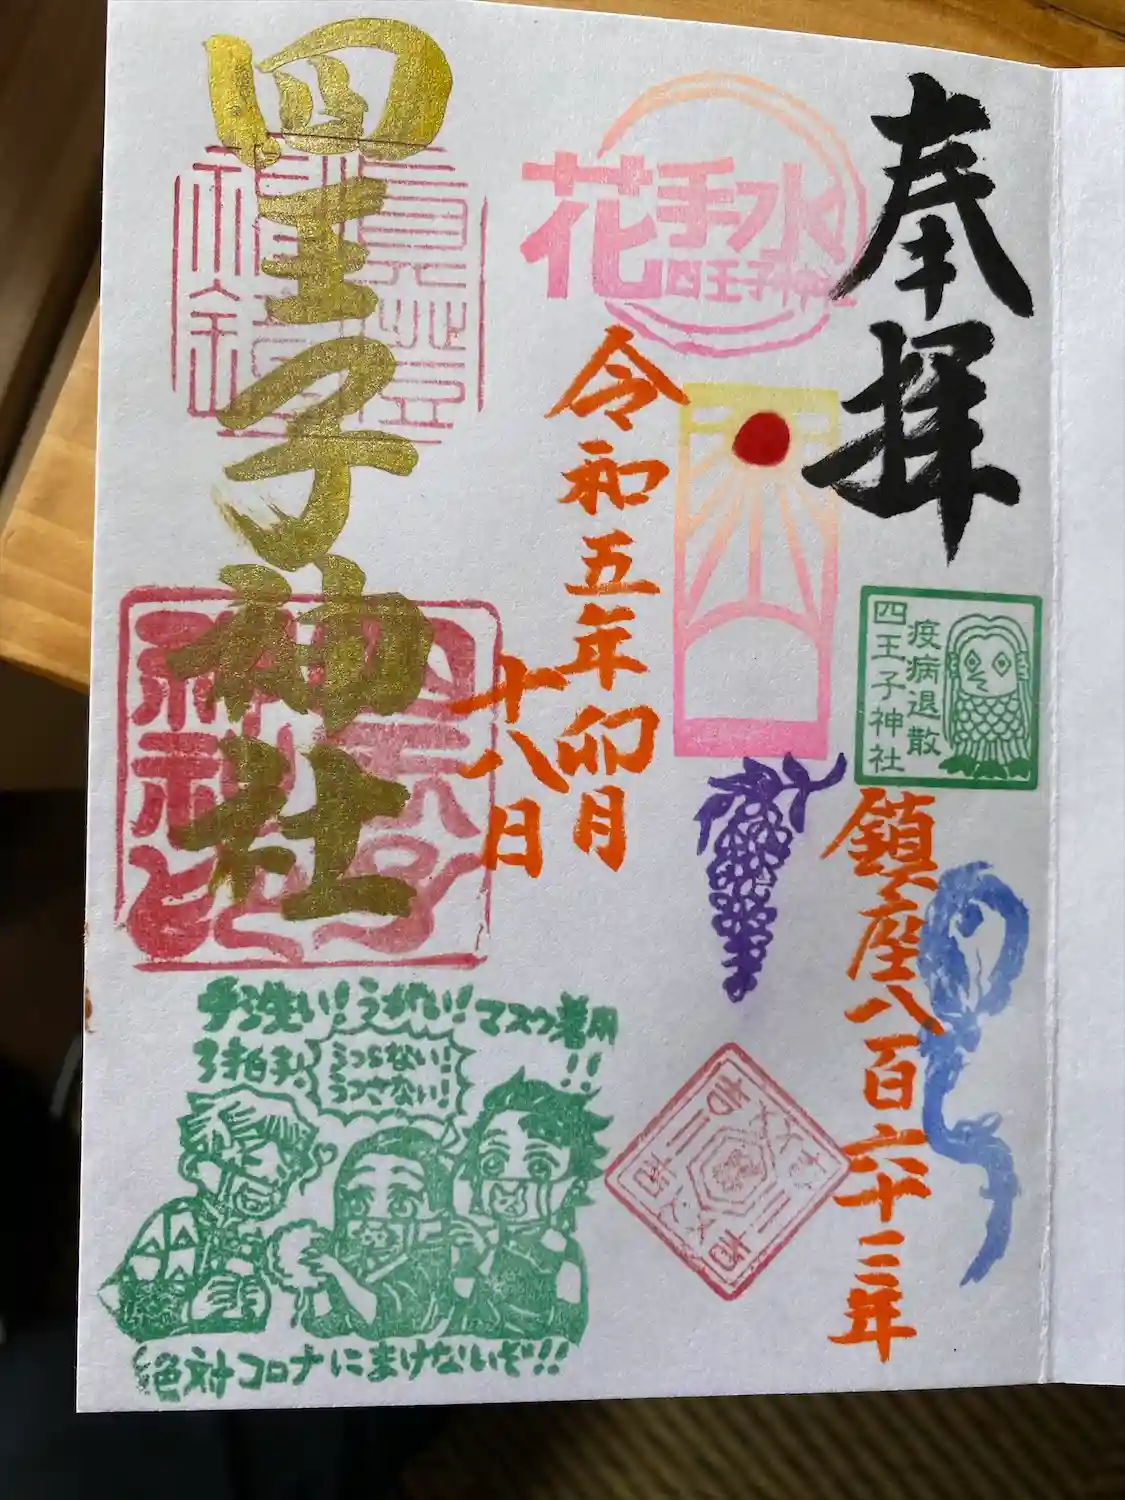 奉拝
疫病退散
四王子神社
鎮座八百六十三年
花手水
四王子神社
令和五年卯月
十八日
四王子神社
手洗い!うがい!マスク着用!!
うつらない!
うつさない!
絶対コロナにまけないぞ!!